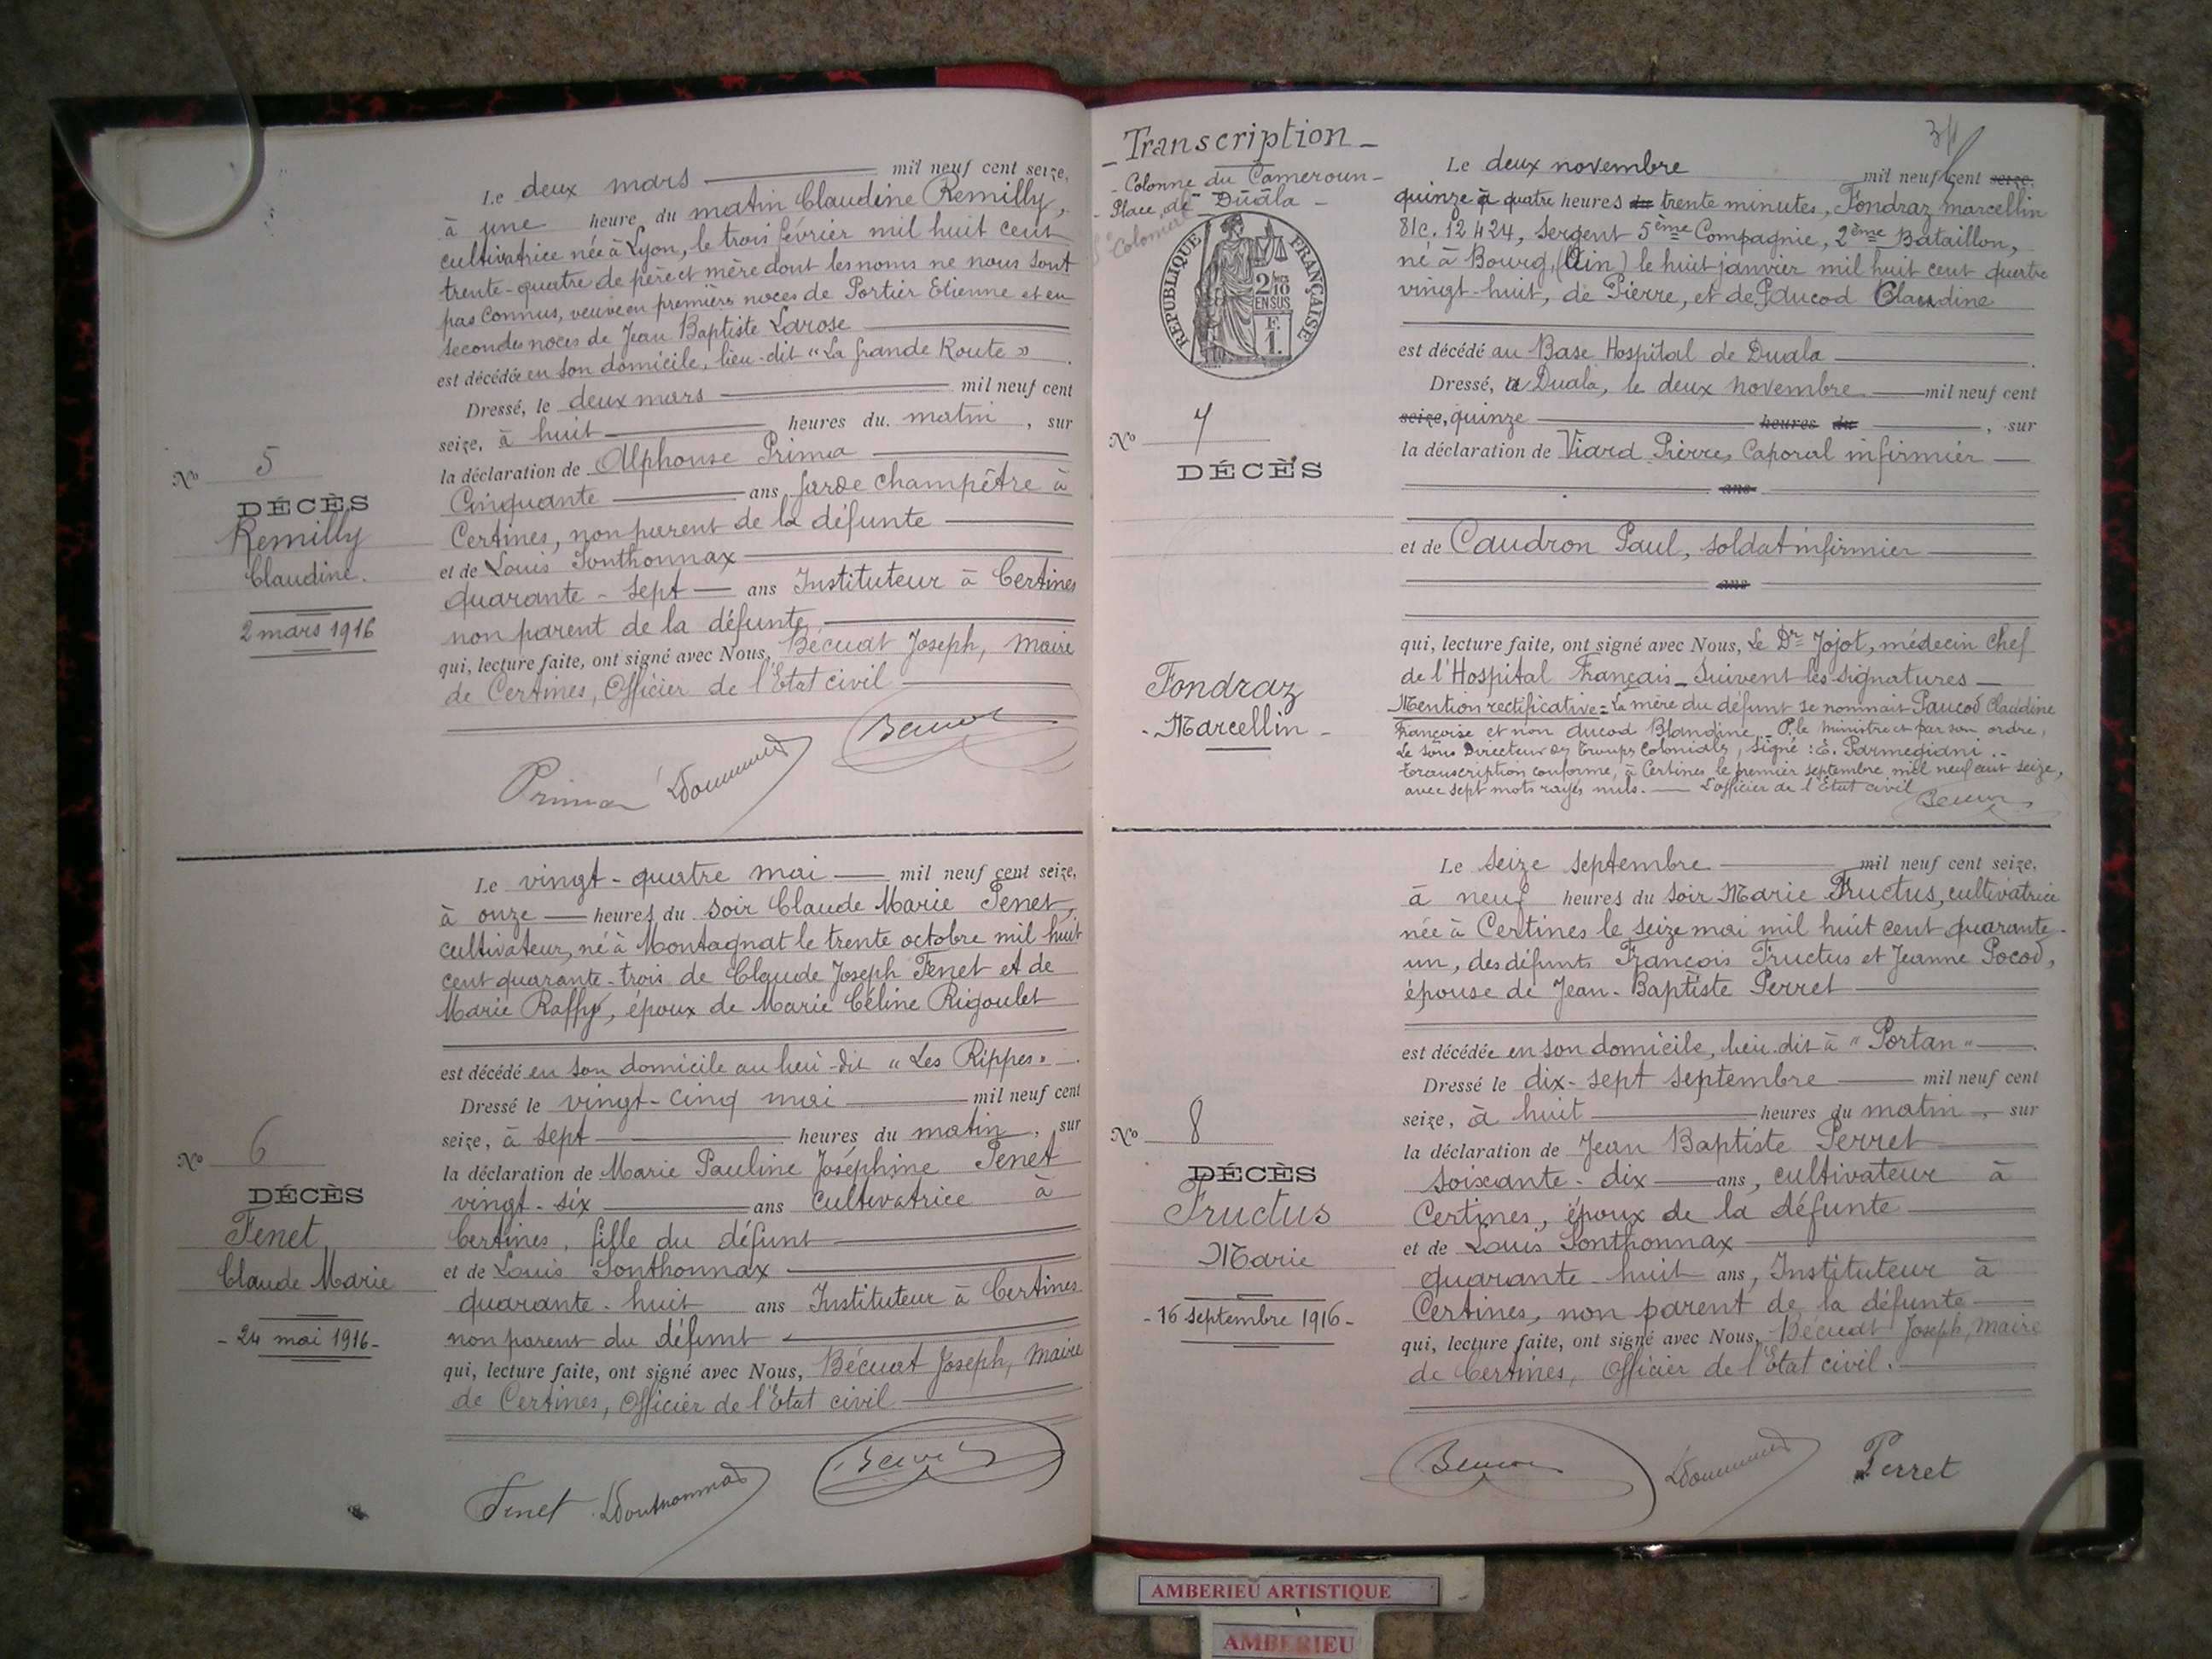 Le deux mars mil neuf cent seize,
à une heure du matin Claudine Remilly,
cultivatrice née à Lyon, le trois février mil huit cent
trente-quatre de père et mère dont les noms ne nous sont
pas connus, veuve en premières noces de Portier Etienne et en
secondes noces de Jean Baptiste Larose
est décédée en son domicile, lieu-dit "La Grande Route".
Dressé, le deux mars mil neuf cent
seize, à huit heures du matin, sur
la déclaration de Alphonse Prima
Cinquante ans Garde champêtre à
Certines, non parent de la défunte
et de Louis Sonthonnax
quarante-sept ans Instituteur à Certines
non parent de la défunte,
qui, lecture faite, ont signé avec Nous, Bécuat Joseph, Maire
de Certines, Officier de l'Etat civil
Prima
No 5
DÉCÈS
Remilly
Claudine.
2 mars 1916
Le vingt-quatre mai mil neuf cent seize,
à onze heures du soir Claude Marie Tenet,
cultivateur, né à Montagnat le trente octobre mil huit
cent quarante-trois de Claude Joseph Tenet et de
Marie Raffy, époux de Marie Céline Rigoulet
est décédé en son domicile au lieu-dit "Les Rippes".
Dressé le vingt-cinq mai mil neuf cent
seize, à sept heures du matin, sur
la déclaration de Marie Pauline Joséphine Tenet
vingt-six ans cultivatrice à
Certines, fille du défunt
et de Louis Sonthonnax
quarante-huit ans Instituteur à Certines
non parent du défunt
qui, lecture faite, ont signé avec Nous, Bécuat Joseph, Maire
de Certines, Officier de l'Etat civil
Tenet LSonthonnax
No 6
DÉCÈS
Tenet
Claude Marie
- 24 mai 1916 -
- Transcription -
- Colonne du Cameroun -
- Place de Duala -
REPUBLIQUE FRANÇAISE
2/10
EN SUS
F.
1.
No 7
DÉCÈS
Fondraz
- Marcellin -
Le deux novembre mil neuf cent seize.
quinze à quatre heures du trente minutes, Fondraz marcellin
81c. 12424, sergent 5ème Compagnie, 2ème Bataillon,
né à Bourg, (Ain) le huit janvier mil huit cent quatre
vingt-huit, de Pierre, et de Paucod Claudine
est décédé au Base Hospital de Duala
Dressé, à Duala, le deux novembre mil neuf cent
seize, quinze heures du, sur
la déclaration de Viard Pierre, Caporal infirmier
ans
et de Caudron Paul, soldat infirmier
ans
qui, lecture faite, ont signé avec Nous, Le Dr Jojot, médecin chef
de l'Hospital Français - Suivent les signatures
Mention rectificative = La mère du défunt se nommait Paucod Claudine
Françoise et non ducod Blandine. - P. le Ministre et par son ordre,
Le Sous Directeur des Troupes Coloniales, signé : E. Parmegiani. -
Transcription conforme, à Certines le premier septembre mil neuf cent seize,
avec sept mots rayés nuls. L'officier de l'Etat civil
Le seize septembre mil neuf cent seize,
à neuf heures du soir Marie Fructus, cultivatrice
née à Certines le seize mai mil huit cent quarante-
un, des défunts François Fructus et Jeanne Pocod,
épouse de Jean-Baptiste Perret
est décédée en son domicile, lieu-dit à "Portan"
Dressé le dix-sept septembre mil neuf cent
seize, à huit heures du matin, sur
la déclaration de Jean Baptiste Perret
soixante-dix ans, cultivateur à
Certines, époux de la défunte
et de Louis Sonthonnax
quarante-huit ans, Instituteur à
Certines, non parent de la défunte
qui, lecture faite, ont signé avec Nous, Bécuat Joseph, Maire
de Certines, Officier de l'Etat civil.
Perret
No 8
DÉCÈS
Fructus
Marie
- 16 septembre 1916 -
AMBERIEU ARTISTIQUE
AMBERIEU